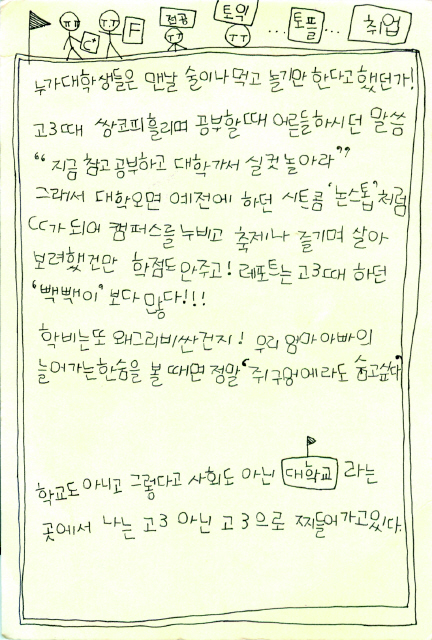 ㅠㅠ ㅠㅠ 전공 토익 토플 취업
C+ F ㅠㅠ ㅠㅠ ... ...
누가 대학생들은 맨날 술이나 먹고 놀기만 한다고 했던가!
고3때 쌍코피 흘리며 공부할때 어른들 하시던 말씀
“지금 참고 공부하고 대학가서 실컷 놀아라”
그래서 대학오면 예전에 하던 시트콤 '논스톱'처럼
CC가 되어 캠퍼스를 누비고 축제나 즐기며 살아
보려했건만 학점도 안주고! 레포트는 고3때 하던
'빽빽이' 보다 많다!!!
학비는 또 왜그리 비싼건지! 우리 엄마 아빠의
늘어가는 한숨을 볼 때면 정말 '쥐구멍에라도 숨고싶다'
학교도 아니고 그렇다고 사회도 아닌 대학교 라는
곳에서 나는 고3 아닌 고3으로 찌들어가고있다.